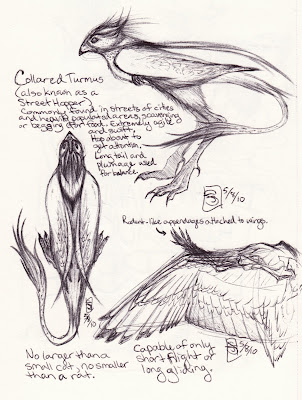 Collared Turmus
(also known as a
Street Hopper)
Commonly found in streets of cities
and heavily populated areas, scavenging
or begging for food. Extremely agile
and swift,
Hop about to
get attention.
Long tail and
plumage used
for balance.
5/8/10
Rodent-like appendages attached to wings.
5/8/10
5/8/10
No larger than a
small cat, no smaller
than a rat.
Capable of only
short flight or
long gliding.